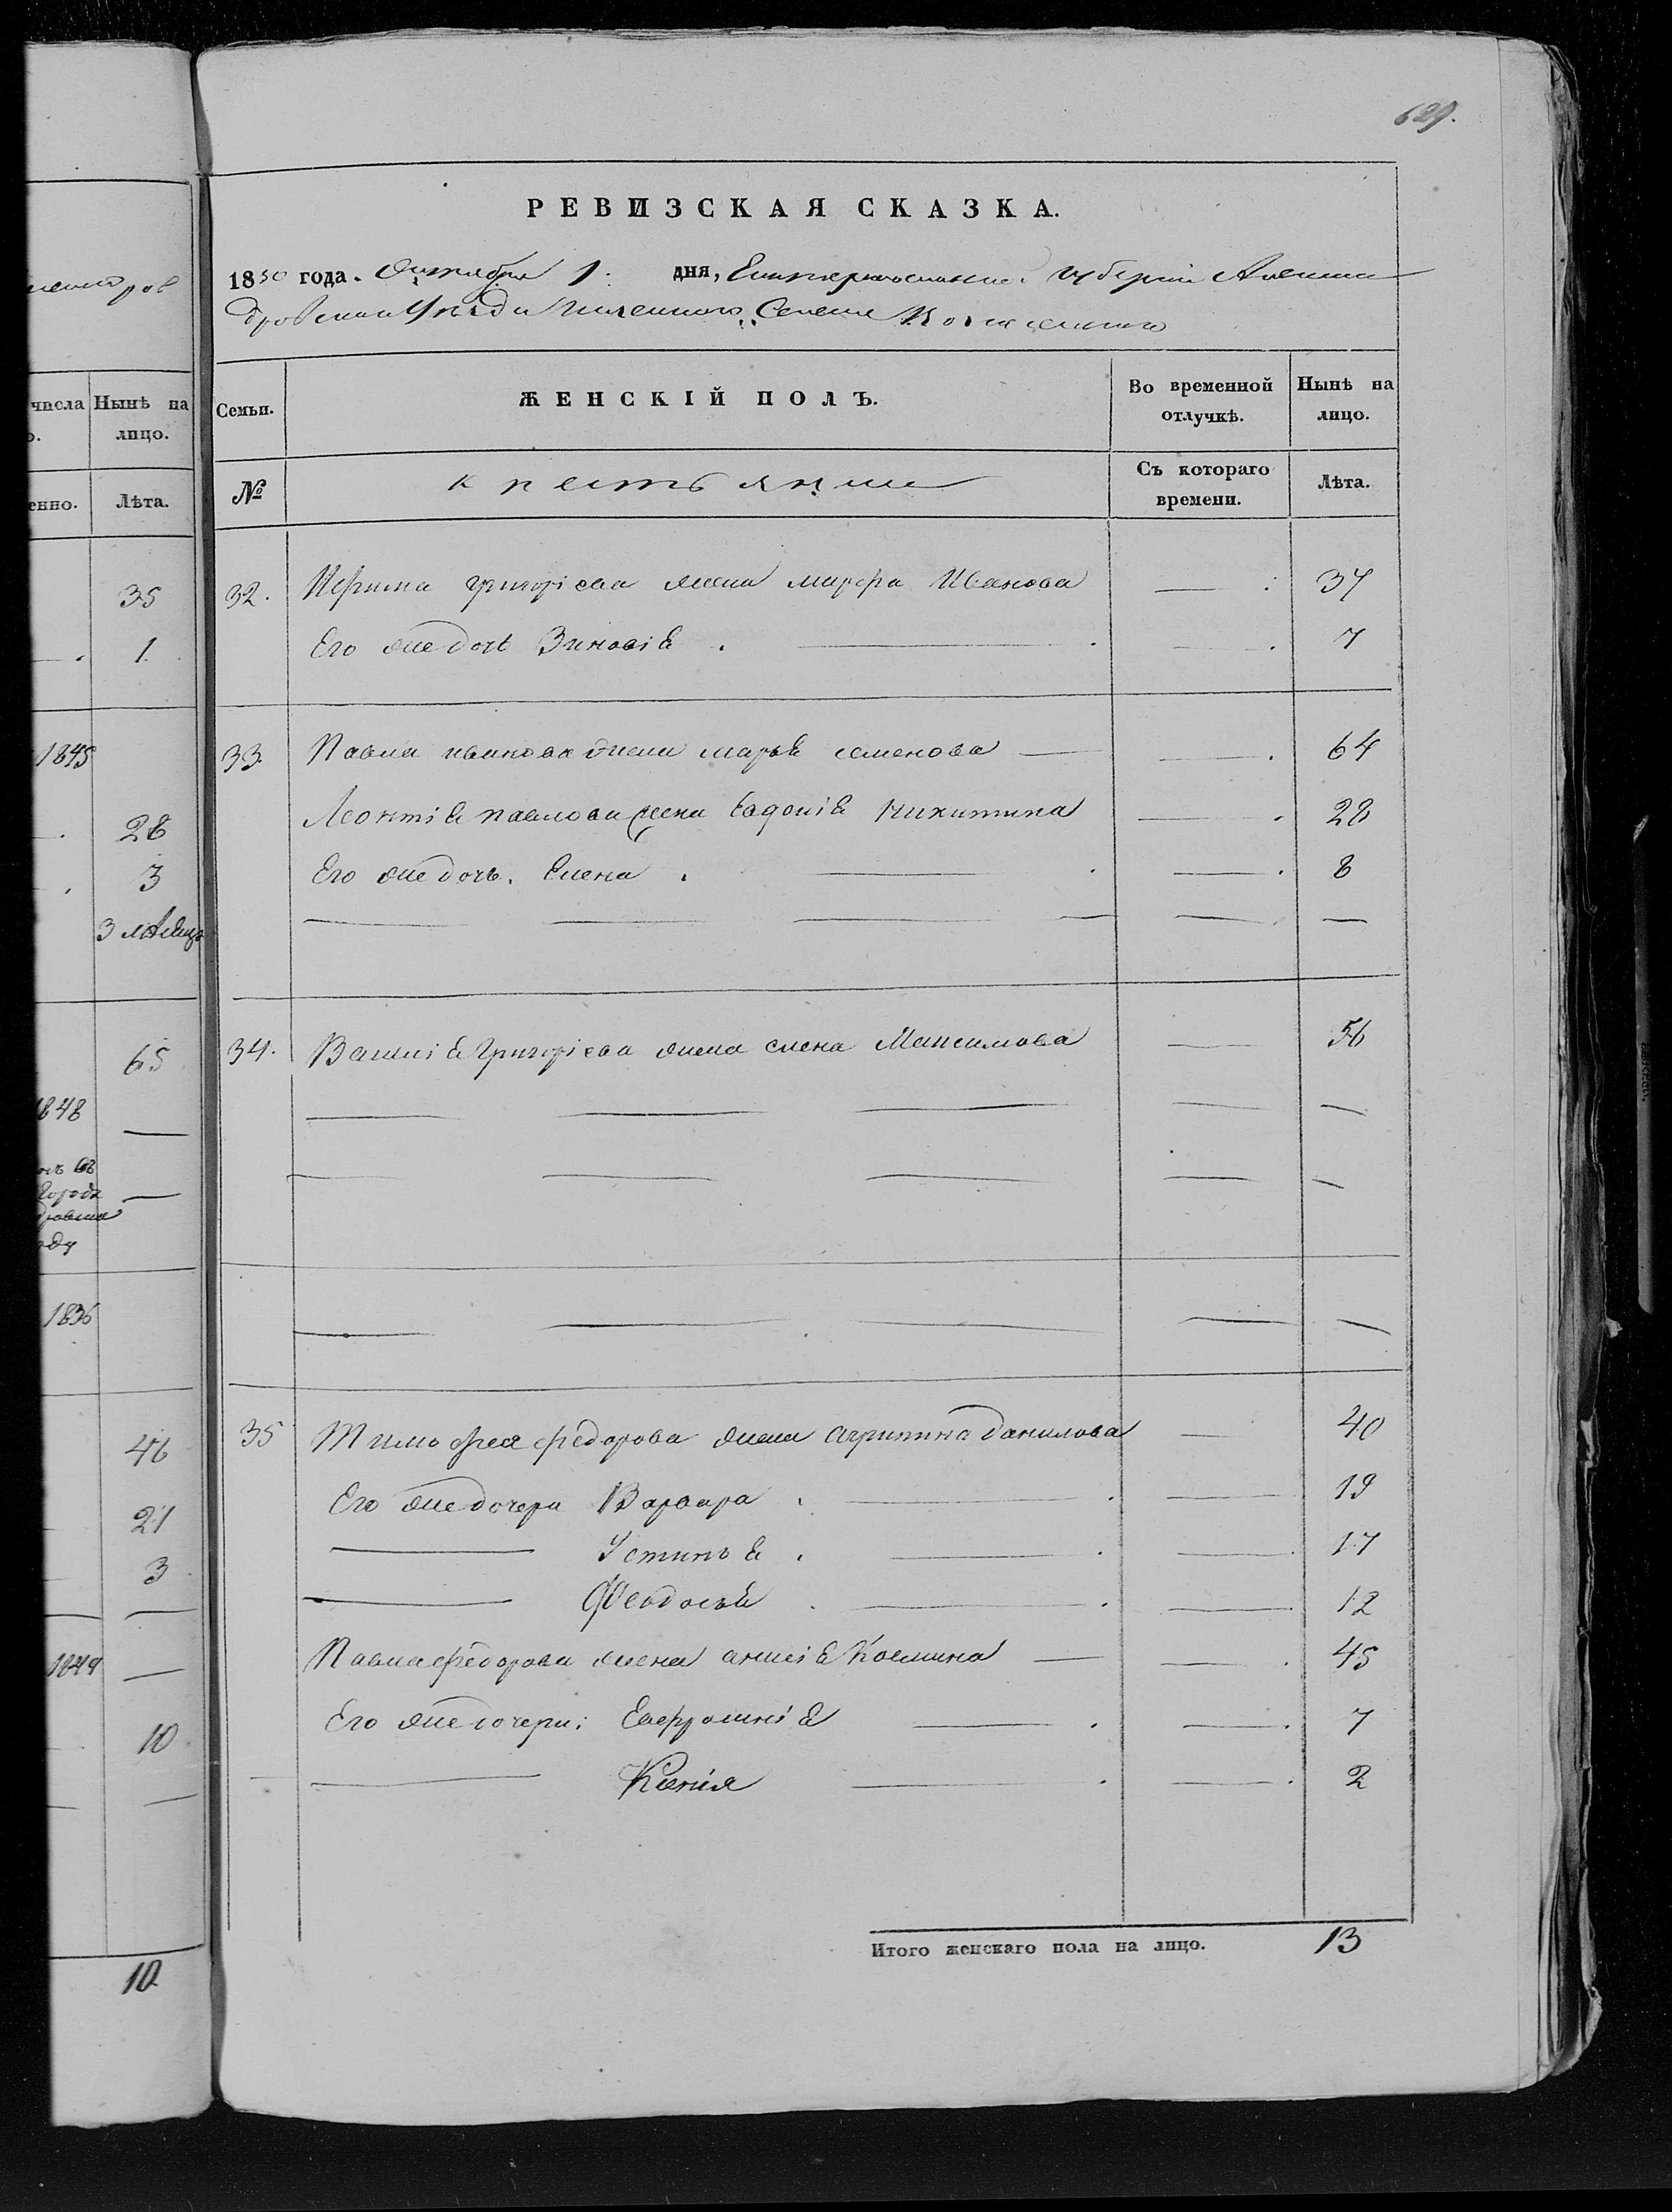 629.
РЕВИЗСКАЯ СКАЗКА.
1850 года. Октября 1. дня, Екатеринославской Губернии Алексан
дровскаго Уезда Казенного Селения
Семьи.
ЖЕНСКІЙ ПОЛЪ.
Во временной отлучкѣ.
Нынѣ на лицо.
№
крестьянъ
Съ котораго времени.
Лѣта.
32. Ефима Григоріева жена марфа Иванова 37
Его же дочь Зиновія 7
33. Павла иванова жена марья семенова 64
Леонтія павлова жена Евдокія Никитина 28
Его же дочь. Елена 8
34. Василія Григоріева жена елена Максимова 56
35 Тимофея федорова жена агрипина данилова 40
Его же дочери Варвара 19
Устинья 17
Феодосья 12
Павла федорова жена анисія Космина 45
Его же дочери: Евфросинія 7
Ксенія 2
Итого женскаго пола на лицо. 13
числа
Нынѣ на лицо.
енно.
Лѣта.
35
1
1845
28
3
65
1848
1836
46
21
3
1849
10
10